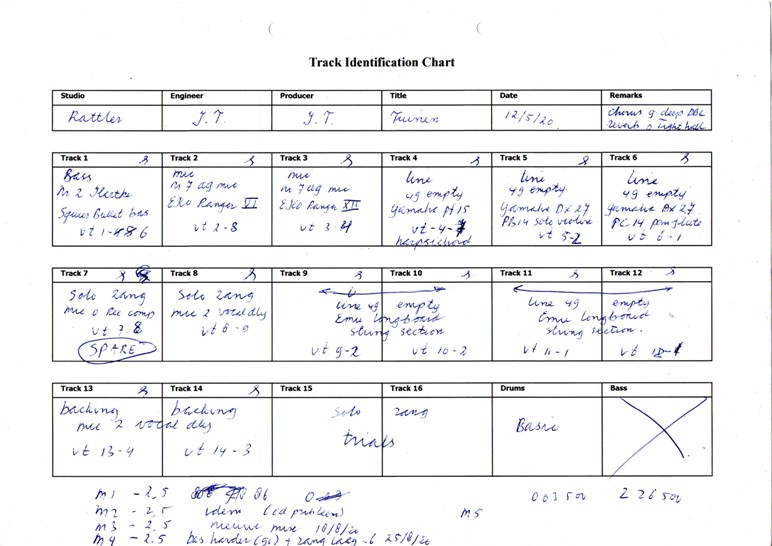 Track Identification Chart
Studio Engineer Producer Title Date Remarks
Rattler J.T. J.T. Tuinen 12/5/20 chorus 9 deep DBL
reverb 0 Tight hall
Track 1 Track 2 Track 3 Track 4 Track 5 Track 6
Bass mic mic line line line
M 2 Hartke M 7 ag mic M 7 ag mic 49 empty 49 empty 49 empty
Squier Bullet bas EKO Ranger VI EKO Ranger XII Yamaha Pf 15 Yamaha DX 27 Yamaha DX 27
vt 1- 6 vt 2-8 vt 3-4 vt -4- PB14 Solo violine PC14 panflute
harpsichord vt 5-2 vt 6-1
Track 7 Track 8 Track 9 Track 10 Track 11 Track 12
Solo zang Solo zang line 49 empty line 49 empty
mic 0 Rec comp mic 2 vocal dly Emu longboard Emu longboard
vt 7-8 vt 8-9 string section string section.
SPARE vt 9-2 vt 10-2 vt 11-1 vt 12-1
Track 13 Track 14 Track 15 Track 16 Drums Bass
backing backing Solo zang Basic
mic 2 vocal dly trials
vt 13-4 vt 14-3
M1 - 2.5 86 003500 226500
M2 - 2.5 idem (cd probleem) M5
M3 - 2.5 nieuwe mix 18/8/20
M4 - 2.5 bas harder + zang laag -6 25/8/20